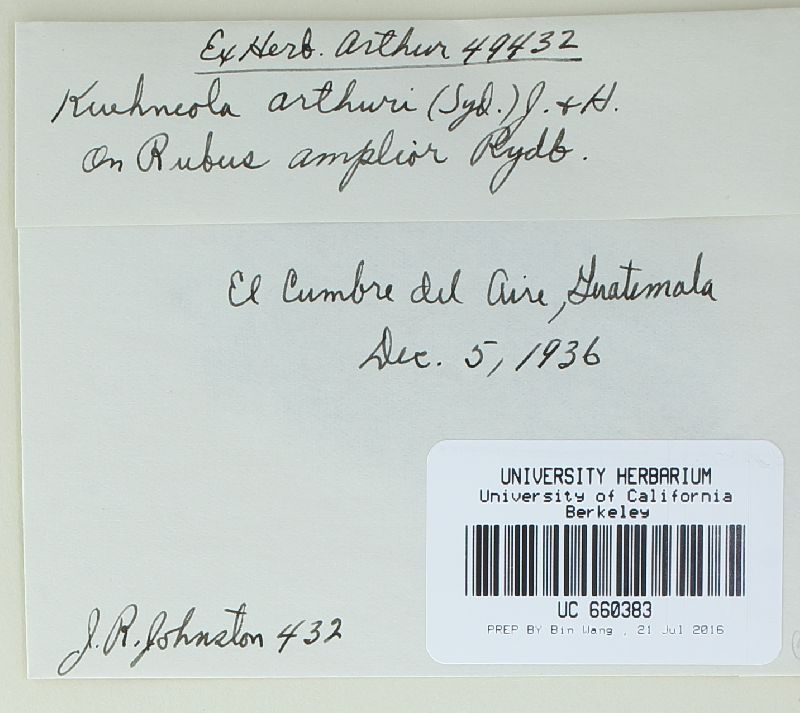 Ex Herb. Arthur 49432
Kuehneola arthuri (Syd.) J. & H.
On Rubus amplior Rydb.
El Cumbre del Aire, Guatemala
Dec. 5, 1936
UNIVERSITY HERBARIUM
University of California
Berkeley
UC 660383
PREP BY Bin Wang , 21 Jul 2016
J. R. Johnston 432